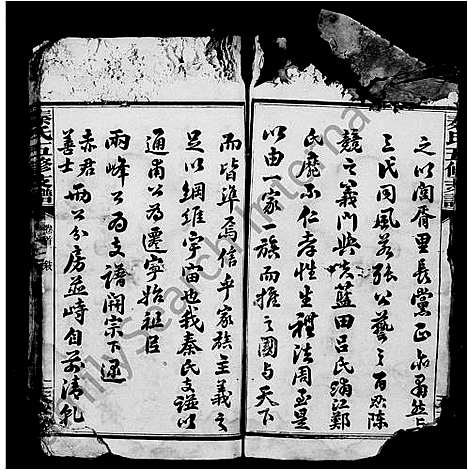 之以閭胥里長黨正亦庶無上
三代同風若張公藝之百忍陳
競之義門與夫藍田呂氏浦江鄭
氏靡不仁孝性生禮法周至是
以由一家一族而推之國與天下
而皆準焉信乎家族主義之
足以綱維宇宙也我秦氏支譜以
通甫公為遷寧始祖至
兩峰公為支譜開宗下逮
赤君
善士
兩公分房並峙自前清乾
秦氏五修支譜
卷首
秦氏五修支譜
FamilySearch International